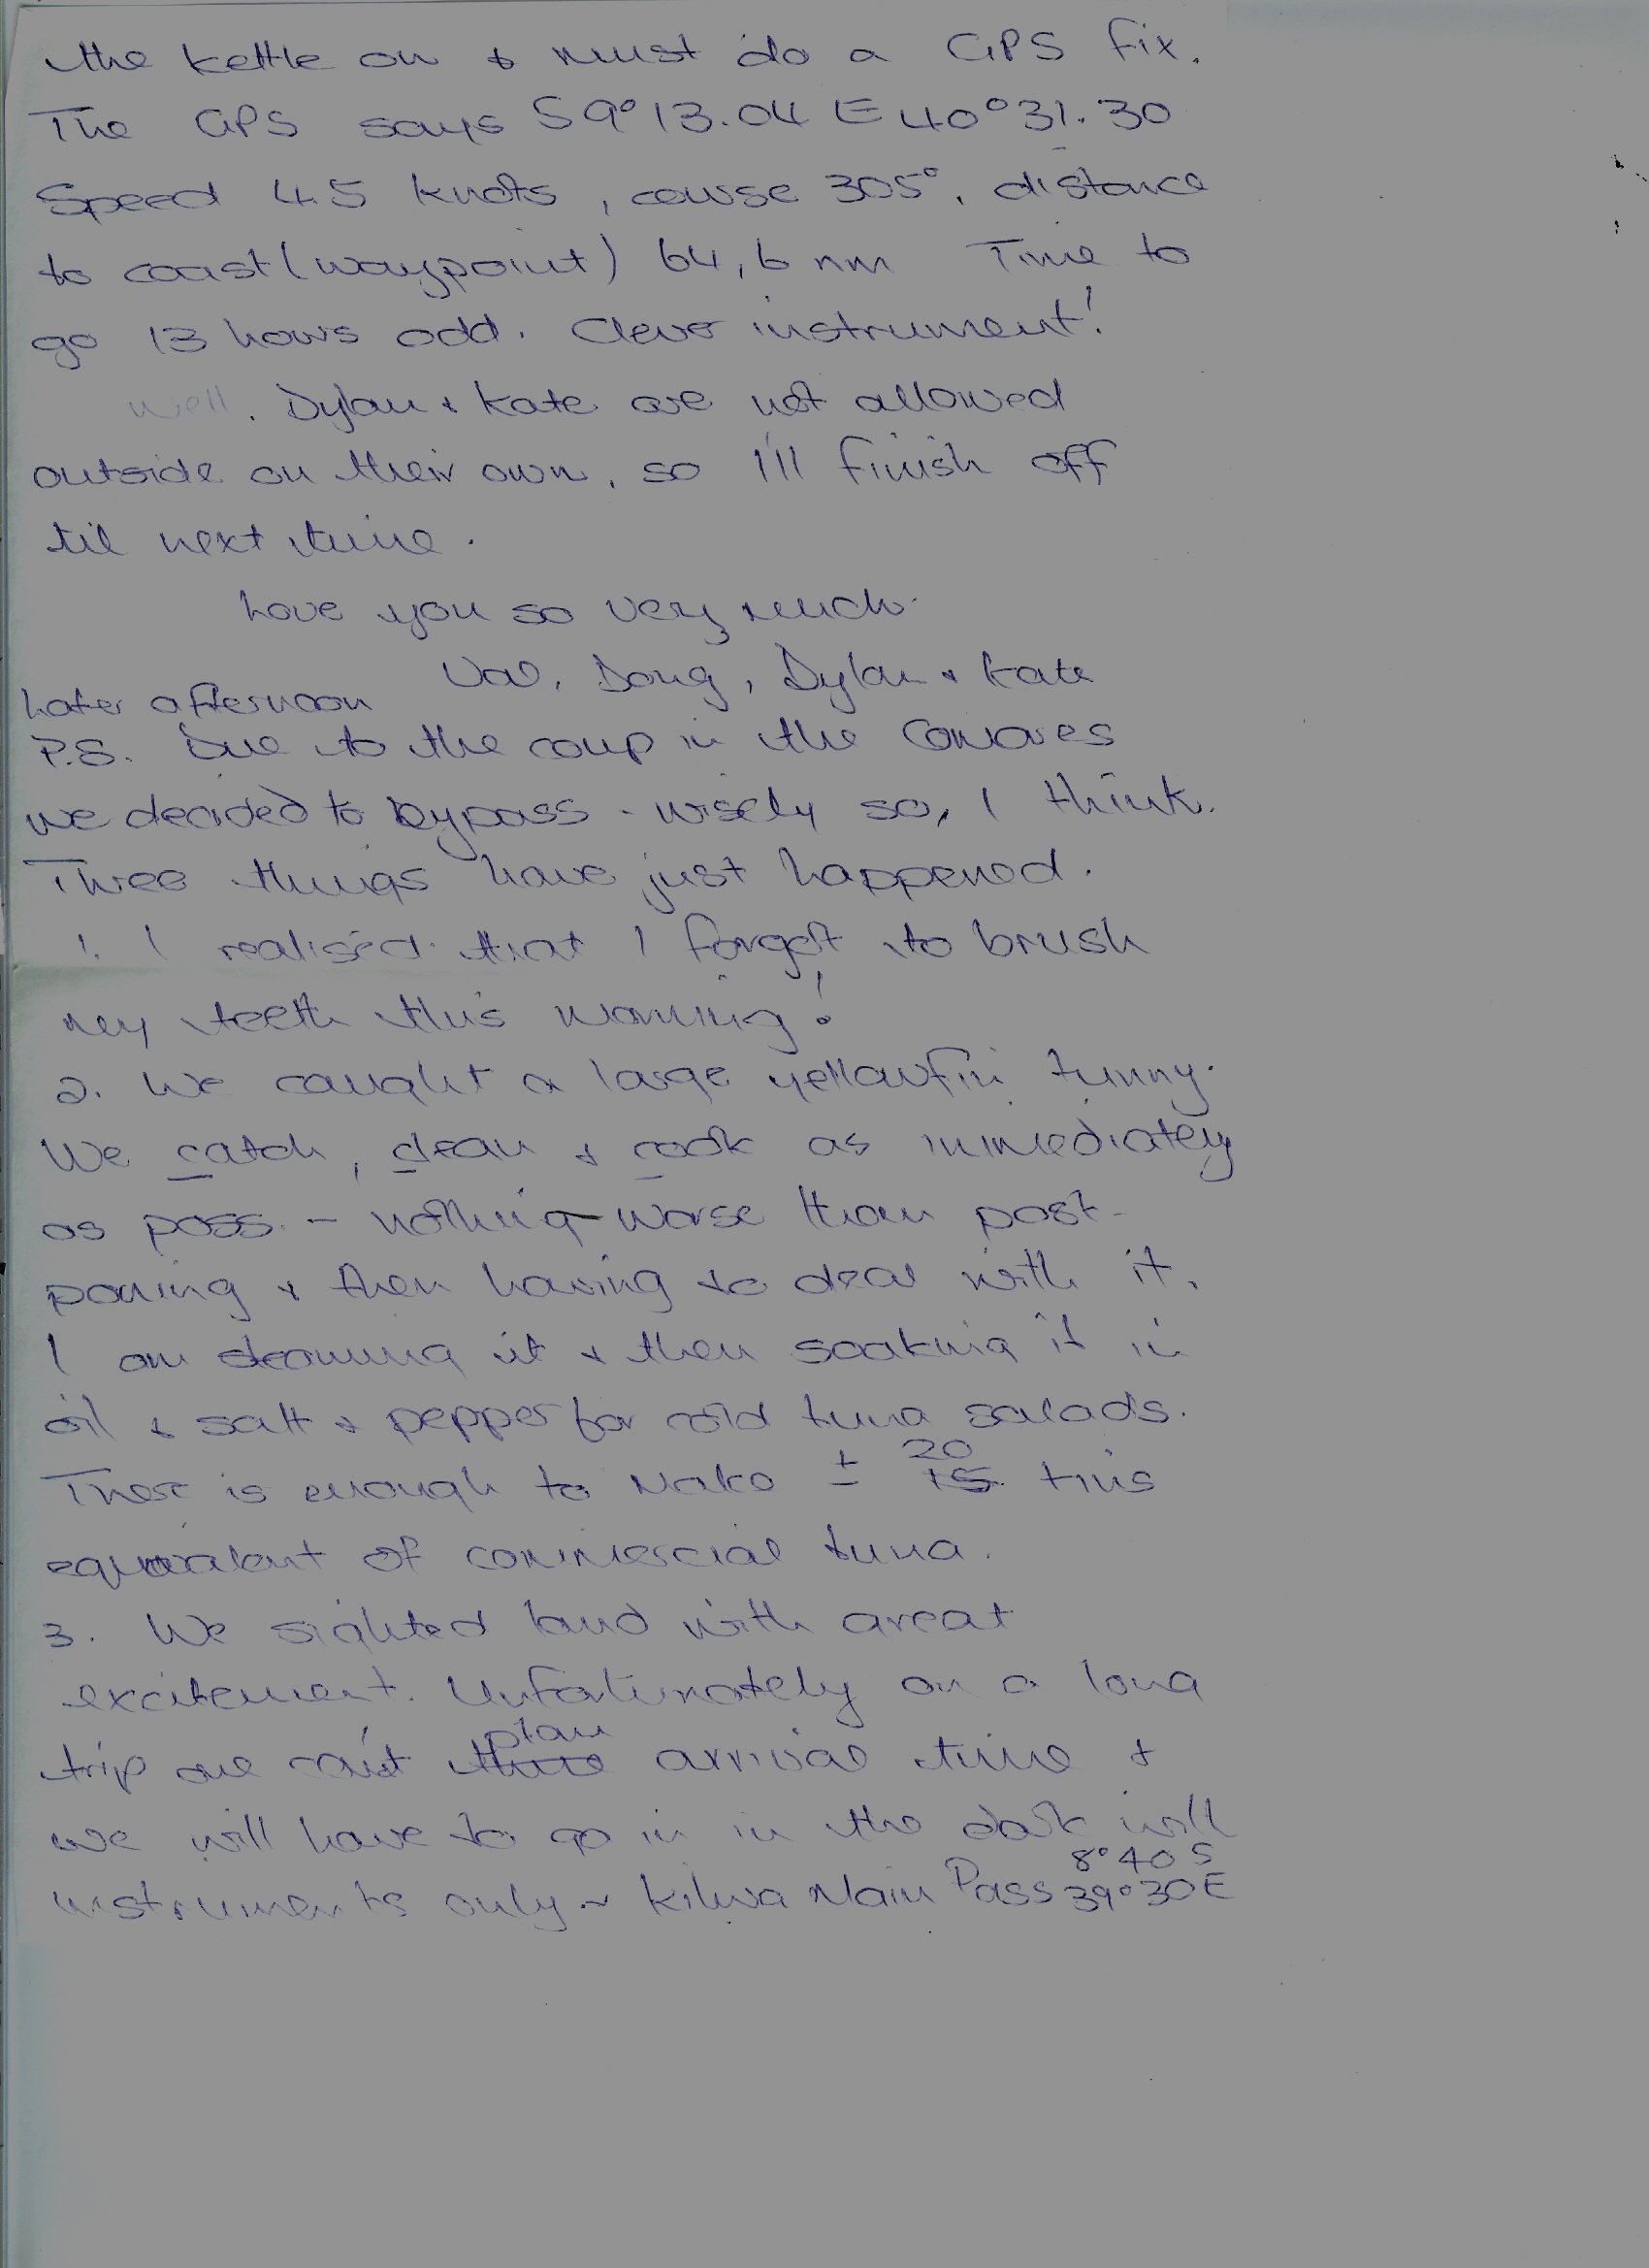 the kettle on & must do a GPS fix.
The GPS says S9°13.04 E40°31.30
Speed 4.5 knots, course 305°, distance
to coast (waypoint) 64,6 nm Time to
go 13 hours odd. Clever instrument!
well. Dylan & Kate are not allowed
outside on their own, so I'll finish off
til next time.
Love you so very much.
Val, Doug, Dylan & Kate
Later afternoon
P.S. Due to the coup in the Comores
we decided to bypass - wisely so, I think.
Three things have just happened.
1. I realised that I forgot to brush
my teeth this morning!
2. We caught a large yellowfin tunny.
We catch, clean & cook as immediately
as poss. - nothing worse than post-
poning & then having to deal with it.
I am steaming it & then soaking it in
oil & salt & pepper for cold tuna salads.
There is enough to make ± 20 tins
equivalent of commercial tuna.
3. We sighted land with great
excitement. Unfortunately on a long
trip one can't plan arrival time &
we will have to go in in the dark with
instruments only ~ Kilwa Main Pass 8°40 S 39°30E